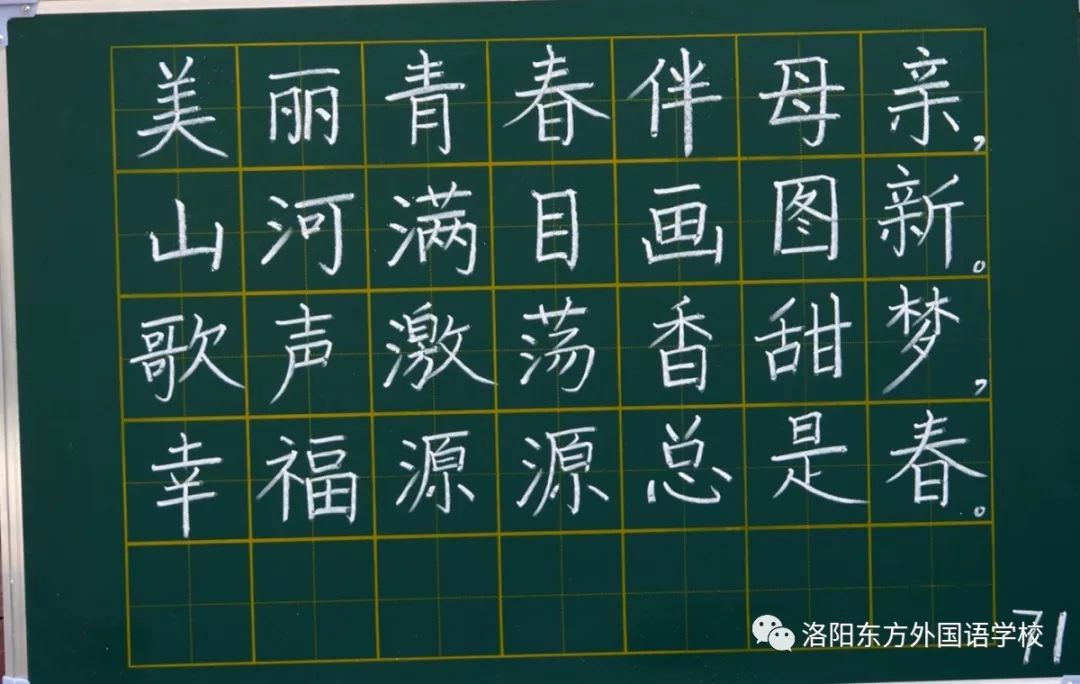 美丽青春伴母亲,
山河满目画图新。
歌声激荡香甜梦,
幸福源源总是春。
洛阳东方外国语学校
71